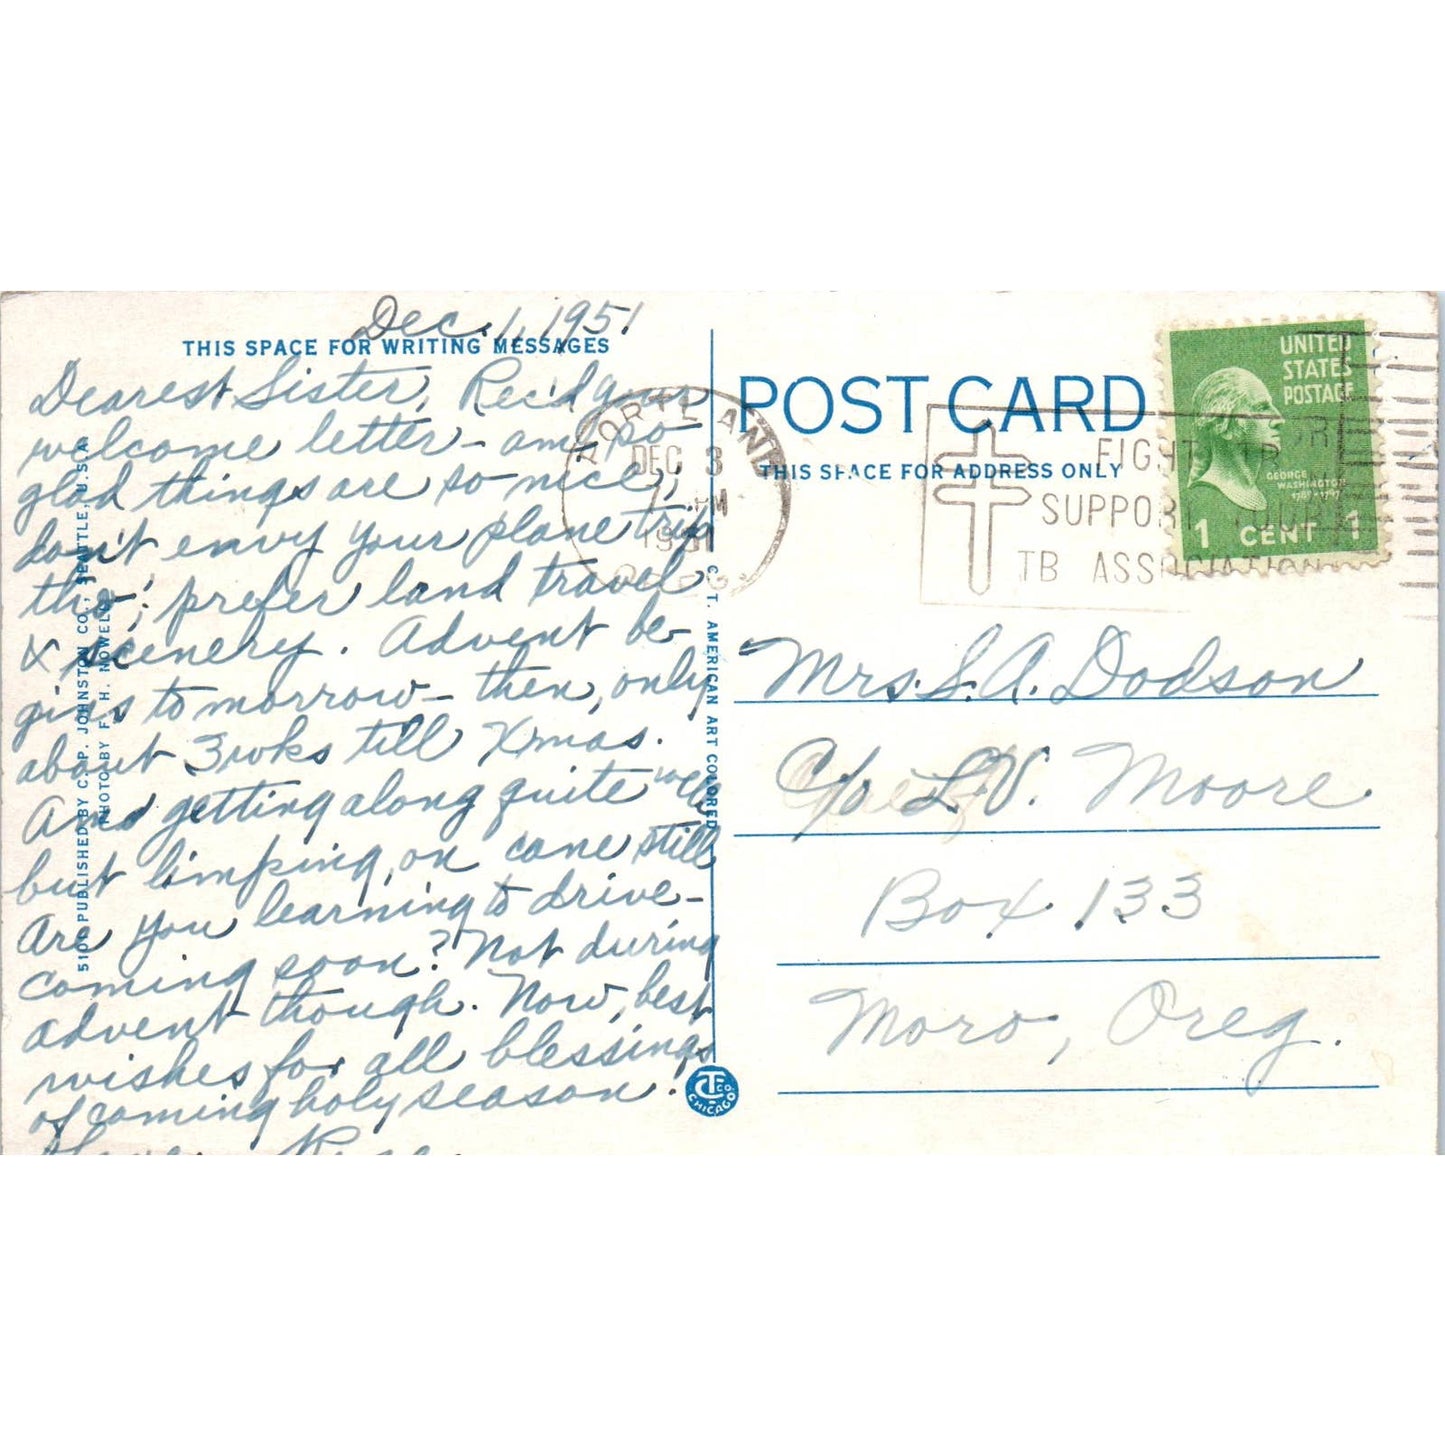 Dec. 1, 1951
THIS SPACE FOR WRITING MESSAGES
Dearest Sister, Rec'd your
welcome letter - am so
glad things are so nice,
don't envy your plane trip
tho'; prefer land travel
& scenery. Advent be-
gins to morrow - then, only
about 3 wks till Xmas.
Am getting along quite well
but limping, on cane still
Are you learning to drive -
coming soon? Not during
advent though. Now, best
wishes for all blessings
of coming holy season.
5101 PUBLISHED BY C. P. JOHNSTON CO., SEATTLE, U.S.A.
PHOTO BY F. H. NOWELL
C. T. AMERICAN ART COLORED
CTCO. CHICAGO
POST CARD
THIS SPACE FOR ADDRESS ONLY
PORTLAND
DEC 3
PM
1951
OREG.
FIGHT TB
SUPPORT YOUR
TB ASSOCIATION
UNITED
STATES
POSTAGE
GEORGE
WASHINGTON
1789-1797
1 CENT 1
Mrs. S. A. Dodson
C/o L. V. Moore
Box 133
Moro, Oreg.